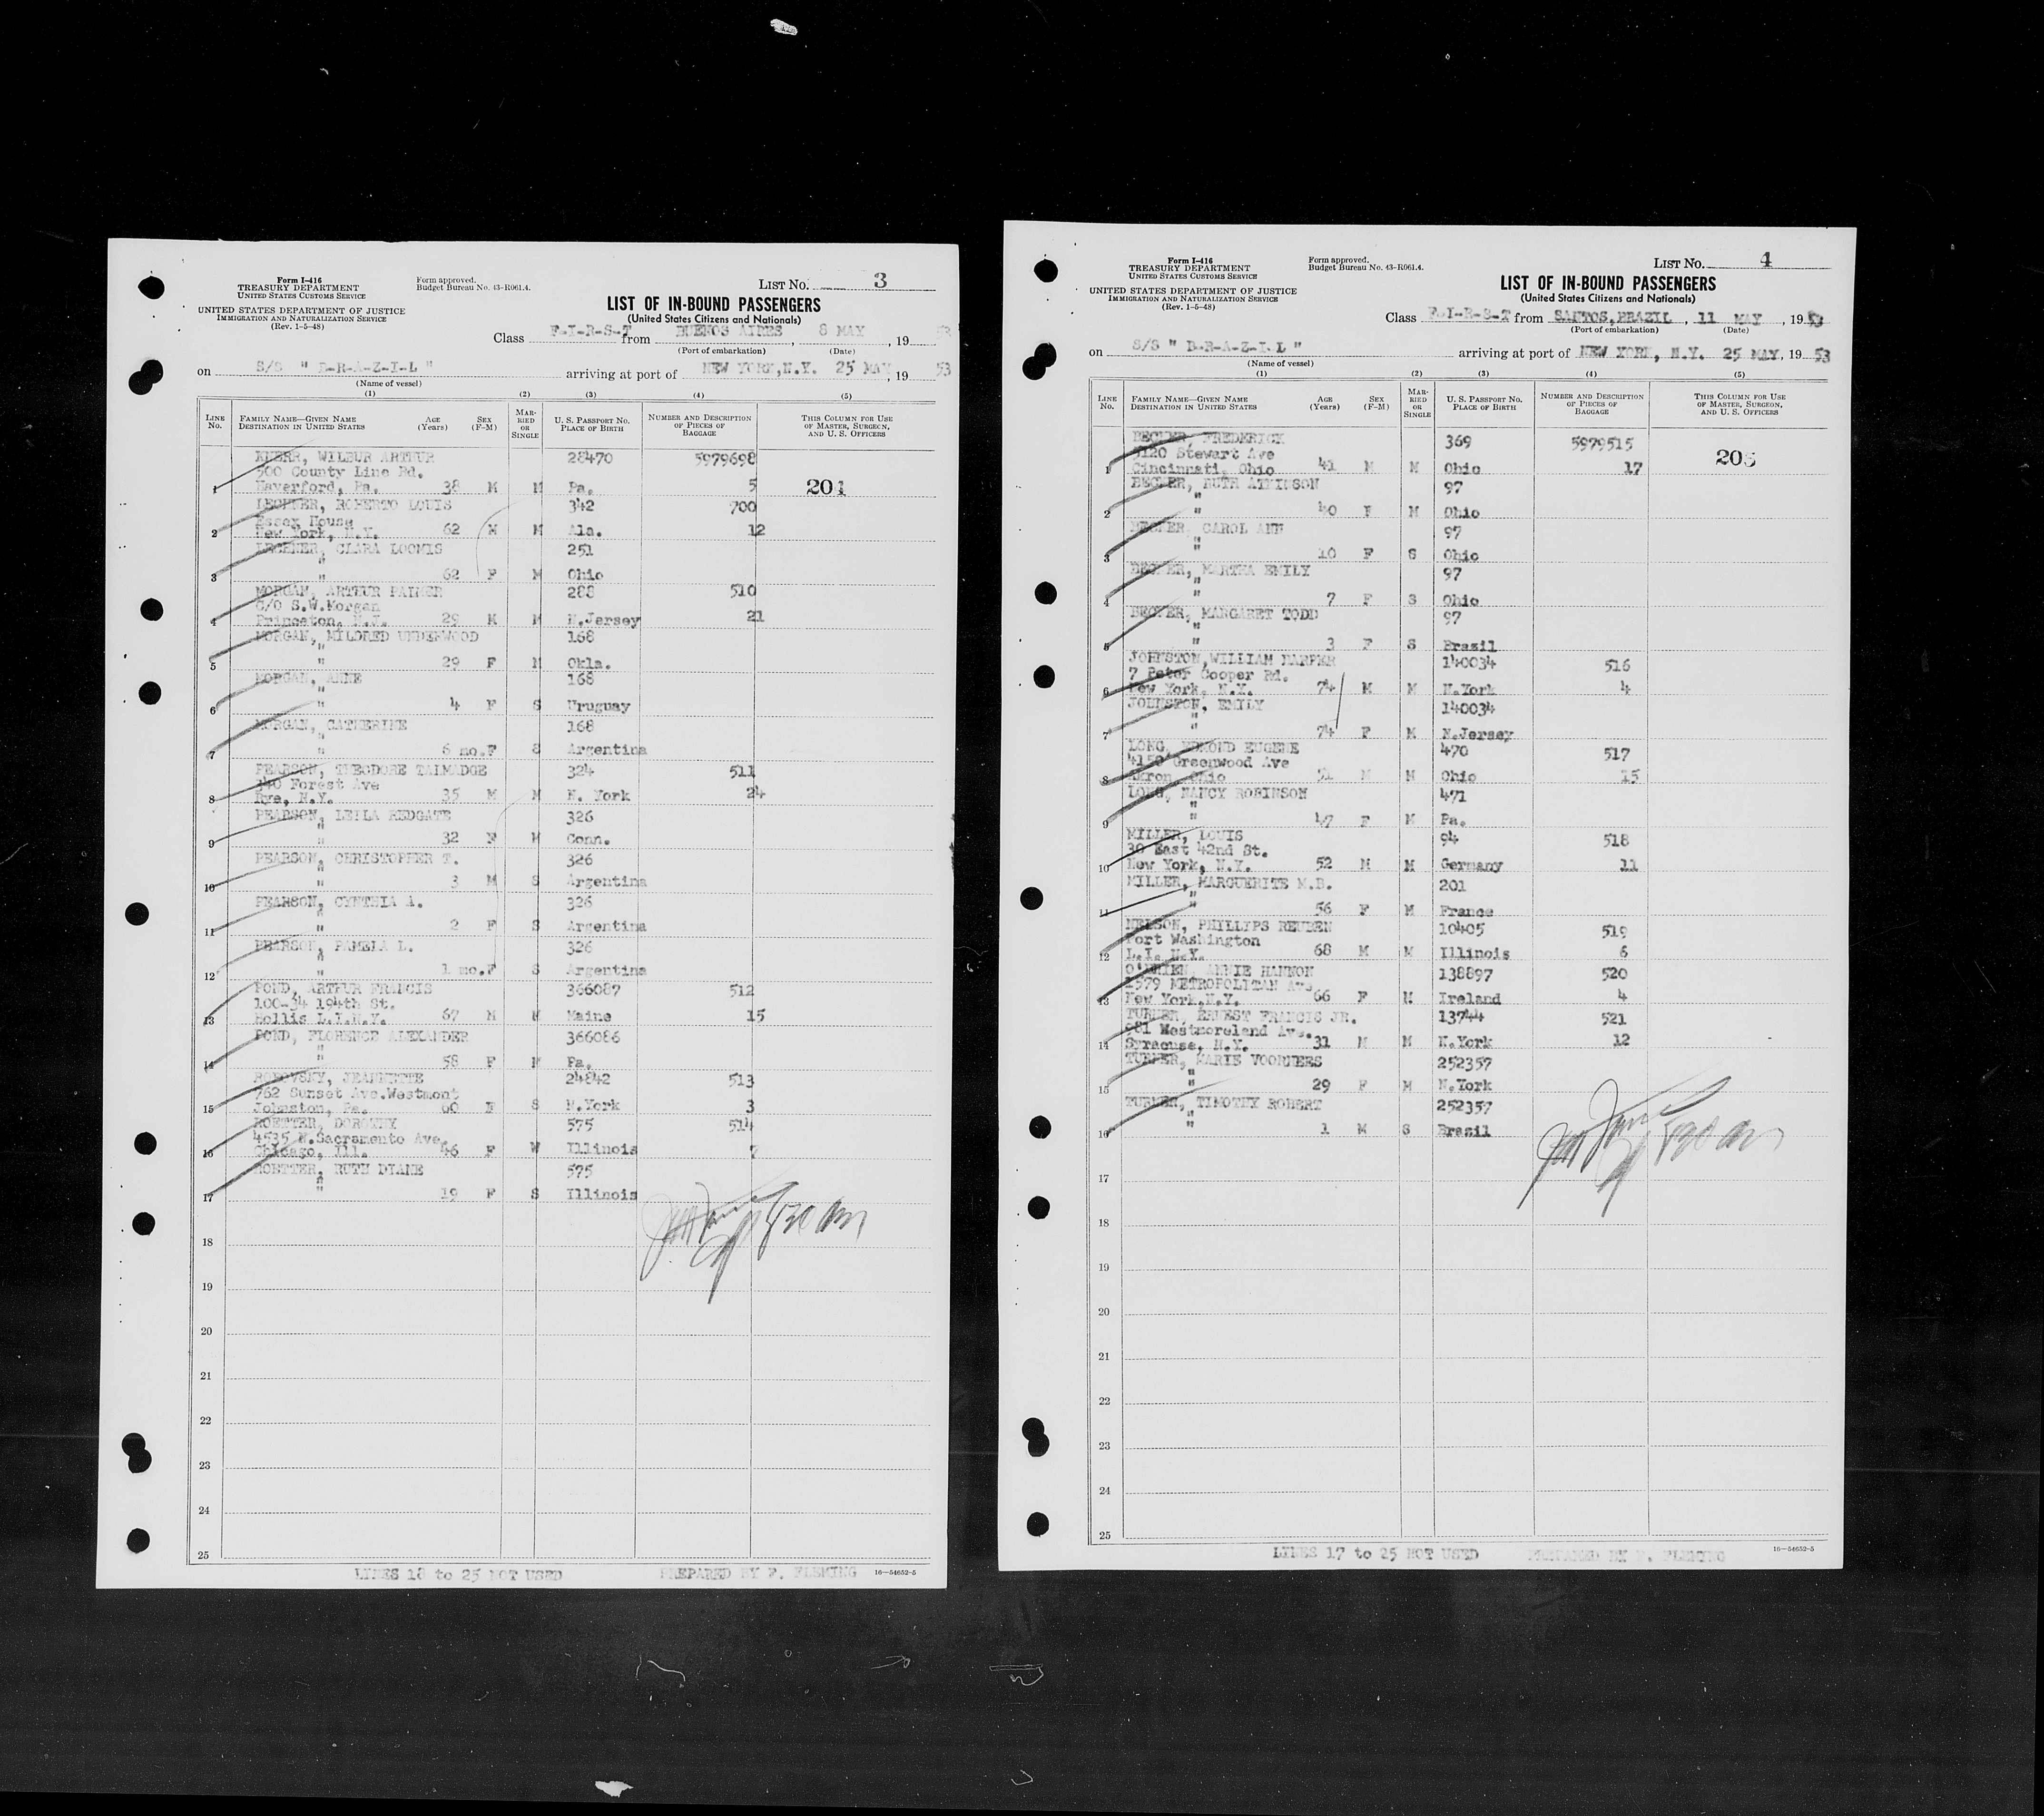 Form I-416
TREASURY DEPARTMENT
UNITED STATES CUSTOMS SERVICE
Form approved.
Budget Bureau No. 43-R061.4.
LIST NO. 3
UNITED STATES DEPARTMENT OF JUSTICE
IMMIGRATION AND NATURALIZATION SERVICE
(Rev. 1-5-48)
LIST OF IN-BOUND PASSENGERS
(United States Citizens and Nationals)
Class F-I-R-S-T from BUENOS AIRES, 8 MAY, 1953
(Port of embarkation) (Date)
on S/S " B-R-A-Z-I-L " arriving at port of NEW YORK, N.Y. 25 MAY, 1953
(Name of vessel)
(1) (2) (3) (4) (5)
LINE No. FAMILY NAME—GIVEN NAME DESTINATION IN UNITED STATES AGE (Years) SEX (F-M) MARRIED OR SINGLE U. S. PASSPORT No. PLACE OF BIRTH NUMBER AND DESCRIPTION OF PIECES OF BAGGAGE THIS COLUMN FOR USE OF MASTER, SURGEON, AND U. S. OFFICERS
WILBUR ARTHUR 28470 5979698
500 County Line Rd.
1 Haverford, Pa. 38 M M Pa. 5 201
ROBERTO LOUIS 342 700
Essex House
2 New York, N.Y. 62 M M Ala. 12
CLARA LOOMIS 251
3 " 62 F M Ohio
MORGAN, ARTHUR PALMER 288 510
C/O S.W.Morgan
4 Princeton, N.J. 29 M M N.Jersey 21
MORGAN, MILDRED UNDERWOOD 168
5 " 29 F M Okla.
MORGAN, ANNE 168
6 " 4 F S Uruguay
MORGAN, CATHERINE 168
7 " 6 mo. F S Argentina
PEARSON, THEODORE TALMADGE 324 511
340 Forest Ave
8 Rye, N.Y. 35 M M N. York 24
PEARSON, LEILA REDGATE 326
9 " 32 F M Conn.
PEARSON, CHRISTOPHER T. 326
10 " 3 M S Argentina
PEARSON, CYNTHIA A. 326
11 " 2 F S Argentina
PEARSON, PAMELA L. 326
12 " 1 mo. F S Argentina
POND, ARTHUR FRANCIS 366087 512
100-34 194th St.
13 Hollis L.I.N.Y. 67 M M Maine 15
POND, FLORENCE ALEXANDER 366086
14 " 58 F M Pa.
JEANNETTE 24842 513
762 Sunset Ave.Westmont
15 Johnston, Pa. 60 F S N.York 3
ROETTER, DOROTHY 575 514
4535 N.Sacramento Ave.
16 Chicago, Ill. 46 F W Illinois 7
ROETTER, RUTH DIANE 575
17 " 19 F S Illinois
18
19
20
21
22
23
24
25
LINES 18 to 25 NOT USED PREPARED BY F. FLEMING 16—54652-5
Form I-416
TREASURY DEPARTMENT
UNITED STATES CUSTOMS SERVICE
Form approved.
Budget Bureau No. 43-R061.4.
LIST NO. 4
UNITED STATES DEPARTMENT OF JUSTICE
IMMIGRATION AND NATURALIZATION SERVICE
(Rev. 1-5-48)
LIST OF IN-BOUND PASSENGERS
(United States Citizens and Nationals)
Class F-I-R-S-T from SANTOS, BRAZIL, 11 MAY, 1953
(Port of embarkation) (Date)
on S/S " B-R-A-Z-I-L " arriving at port of NEW YORK, N.Y. 25 MAY, 1953
(Name of vessel)
(1) (2) (3) (4) (5)
LINE No. FAMILY NAME—GIVEN NAME DESTINATION IN UNITED STATES AGE (Years) SEX (F-M) MARRIED OR SINGLE U. S. PASSPORT No. PLACE OF BIRTH NUMBER AND DESCRIPTION OF PIECES OF BAGGAGE THIS COLUMN FOR USE OF MASTER, SURGEON, AND U. S. OFFICERS
FREDERICK 369 5979515
Stewart Ave 205
1 Cincinnati, Ohio 41 M M Ohio 17
RUTH ATKINSON 97
2 " 40 F M Ohio
CAROL ANN 97
3 " 10 F S Ohio
MARTHA EMILY 97
4 " 7 F S Ohio
MARGARET TODD 97
5 " 3 F S Brazil
JOHNSTON, WILLIAM HARPER 140034 516
7 Peter Cooper Rd.
6 New York, N.Y. 74 M M N.York 4
JOHNSTON, EMILY 140034
7 " 74 F M N.Jersey
LONG, EDMOND EUGENE 470 517
4150 Greenwood Ave
8 Akron, Ohio 51 M M Ohio 15
LONG, NANCY ROBINSON 471
9 " 47 F M Pa.
MILLER, LOUIS 94 518
30 East 42nd St.
10 New York, N.Y. 52 M M Germany 11
MILLER, MARGUERITE M.B. 201
11 " 56 F M France
NELSON, PHILLYPS REUBEN 10405 519
Port Washington
12 L.I. N.Y. 68 M M Illinois 6
O'BRIEN, ANNIE HANNON 138897 520
1579 METROPOLITAN Ave
13 New York,N.Y. 66 F M Ireland 4
TURNER, ERNEST FRANCIS JR. 13744 521
981 Westmoreland Ave.
14 Syracuse, N.Y. 31 M M N.York 12
TURNER, MARIE VOORHEES 252357
15 " 29 F M N.York
TURNER, TIMOTHY ROBERT 252357
16 " 1 M S Brazil
17
18
19
20
21
22
23
24
25
LINES 17 to 25 NOT USED PREPARED BY F. FLEMING 16—54652-5